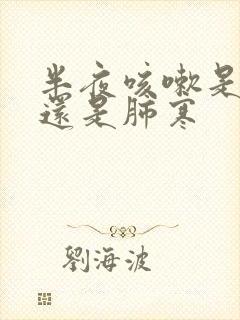 半夜咳嗽是
還是肺寒
劉海波